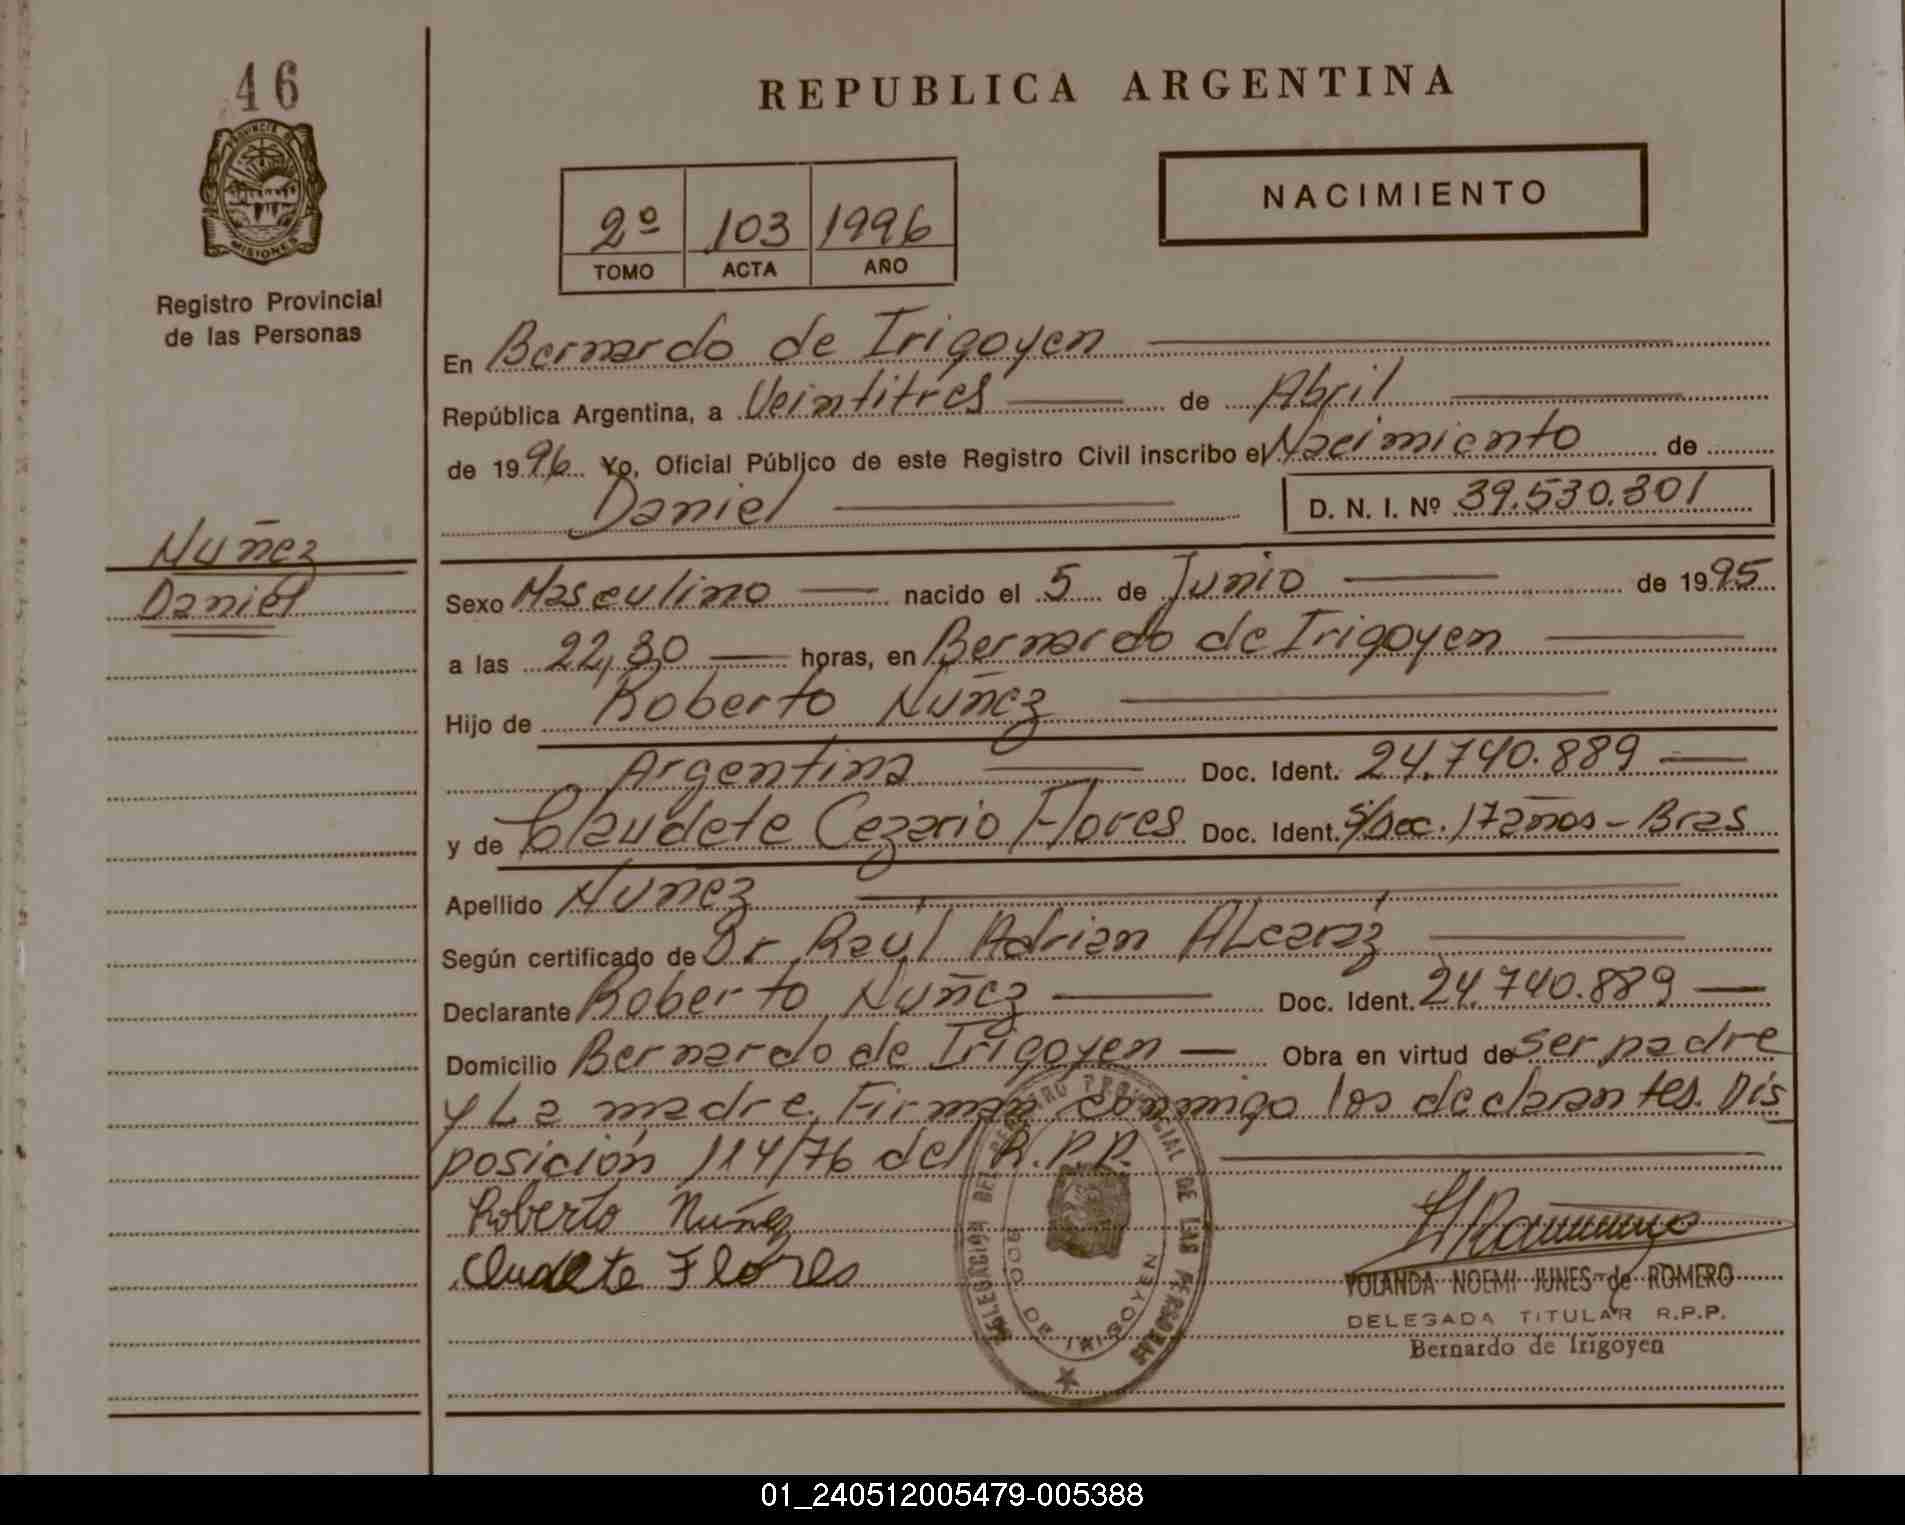 46
PROVINCIA DE
MISIONES
Registro Provincial
de las Personas
Nuñez
Daniel
REPUBLICA ARGENTINA
2º 103 1996
TOMO ACTA AÑO
NACIMIENTO
En Bernardo de Irigoyen
República Argentina, a Veintitres de Abril
de 1996 Yo, Oficial Público de este Registro Civil inscribo el Nacimiento de
Daniel D. N. I. Nº 39.530.301
Sexo Masculino nacido el 5 de Junio de 1995
a las 22,30 horas, en Bernardo de Irigoyen
Hijo de Roberto Nuñez
Argentina Doc. Ident. 24.740.889
y de Claudete Cezario Flores Doc. Ident. s/Doc. 17años - Bras
Apellido Nuñez
Según certificado de Dr. Raúl Adrian ALcaráz
Declarante Roberto Nuñez Doc. Ident. 24.740.889
Domicilio Bernardo de Irigoyen Obra en virtud de ser padre
y La madre. Firman conmigo los declarantes. Dis
posición 114/76 del R.P.P.
Roberto Nuñez
Flores
DELEGACION DEL REGISTRO PROVINCIAL DE LAS PERSONAS
DE IRIGOYEN
YOLANDA NOEMI JUNES de ROMERO
DELEGADA TITULAR R.P.P.
Bernardo de Irigoyen
01_240512005479-005388